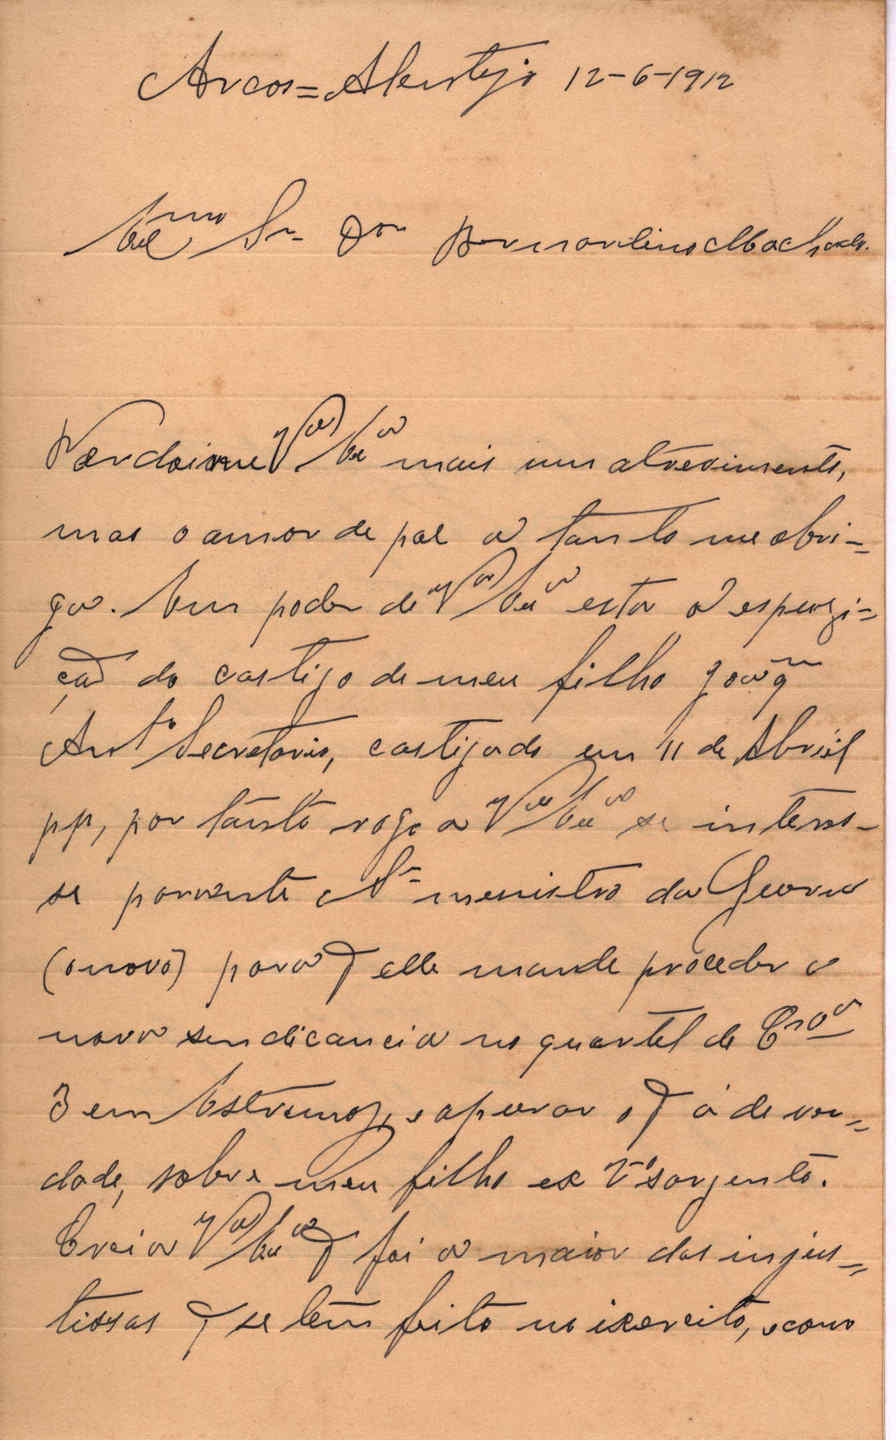 Arcos = Alentejo 12-6-1912
Exmo Sr Dor Bernardino Machado.
Perdoi-me Vª Exª mais um atrevimento,
mas o amor de pae a tanto me obri=
ga. Em poder de Vª Exª esta a espuzi=
çaõ do castigo de meu filho Joaqm
Antº Secretario, castigado em 11 de Abril
pp, por tanto rogo a Vª Exª se interes-
se perante o Sr menistro da Guerra
(o novo) para q elle mande proceder a
nova sendicancia no quartel de Cvaª
3 em Estremoz, e apurar o q á de ver=
dade, sobre meu filho ex 2º sargento.
Creia Vª Exª q foi a maior das injus=
tissas q se têm feito no ixercito, e como